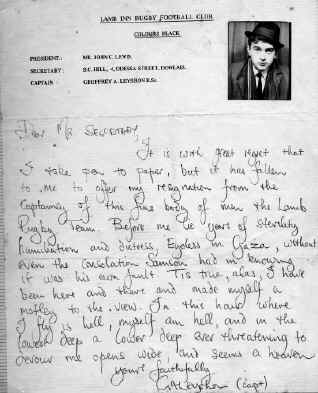 LAMB INN RUGBY FOOTBALL CLUB
COLOURS BLACK
PRESIDENT: MR. JOHN C. LEWD.
SECRETARY: D.C. HILL, 4, ODESSA STREET, DOWLAIS.
CAPTAIN GEOFFREY A. LEYSHON B.Sc.
Dear Mr Secretary,
It is with great regret that
I take pen to paper, but it has fallen
to me to offer my resignation from the
Captaincy of this fine body of men the Lamb
Rugby Team. Before me lie years of sterility
humiliation and distress, Eyeless in Gaza, without
even the consolation Samson had in knowing
it was his own fault. Tis true, alas, I have
been here and there and made myself a
motley to the view. I'm thus where
I fly is hell, myself am hell, and in the
lowest deep a lower deep ever threatening to
devour me opens wide, and seems a heaven
yours faithfully
G A Leyshon (capt)